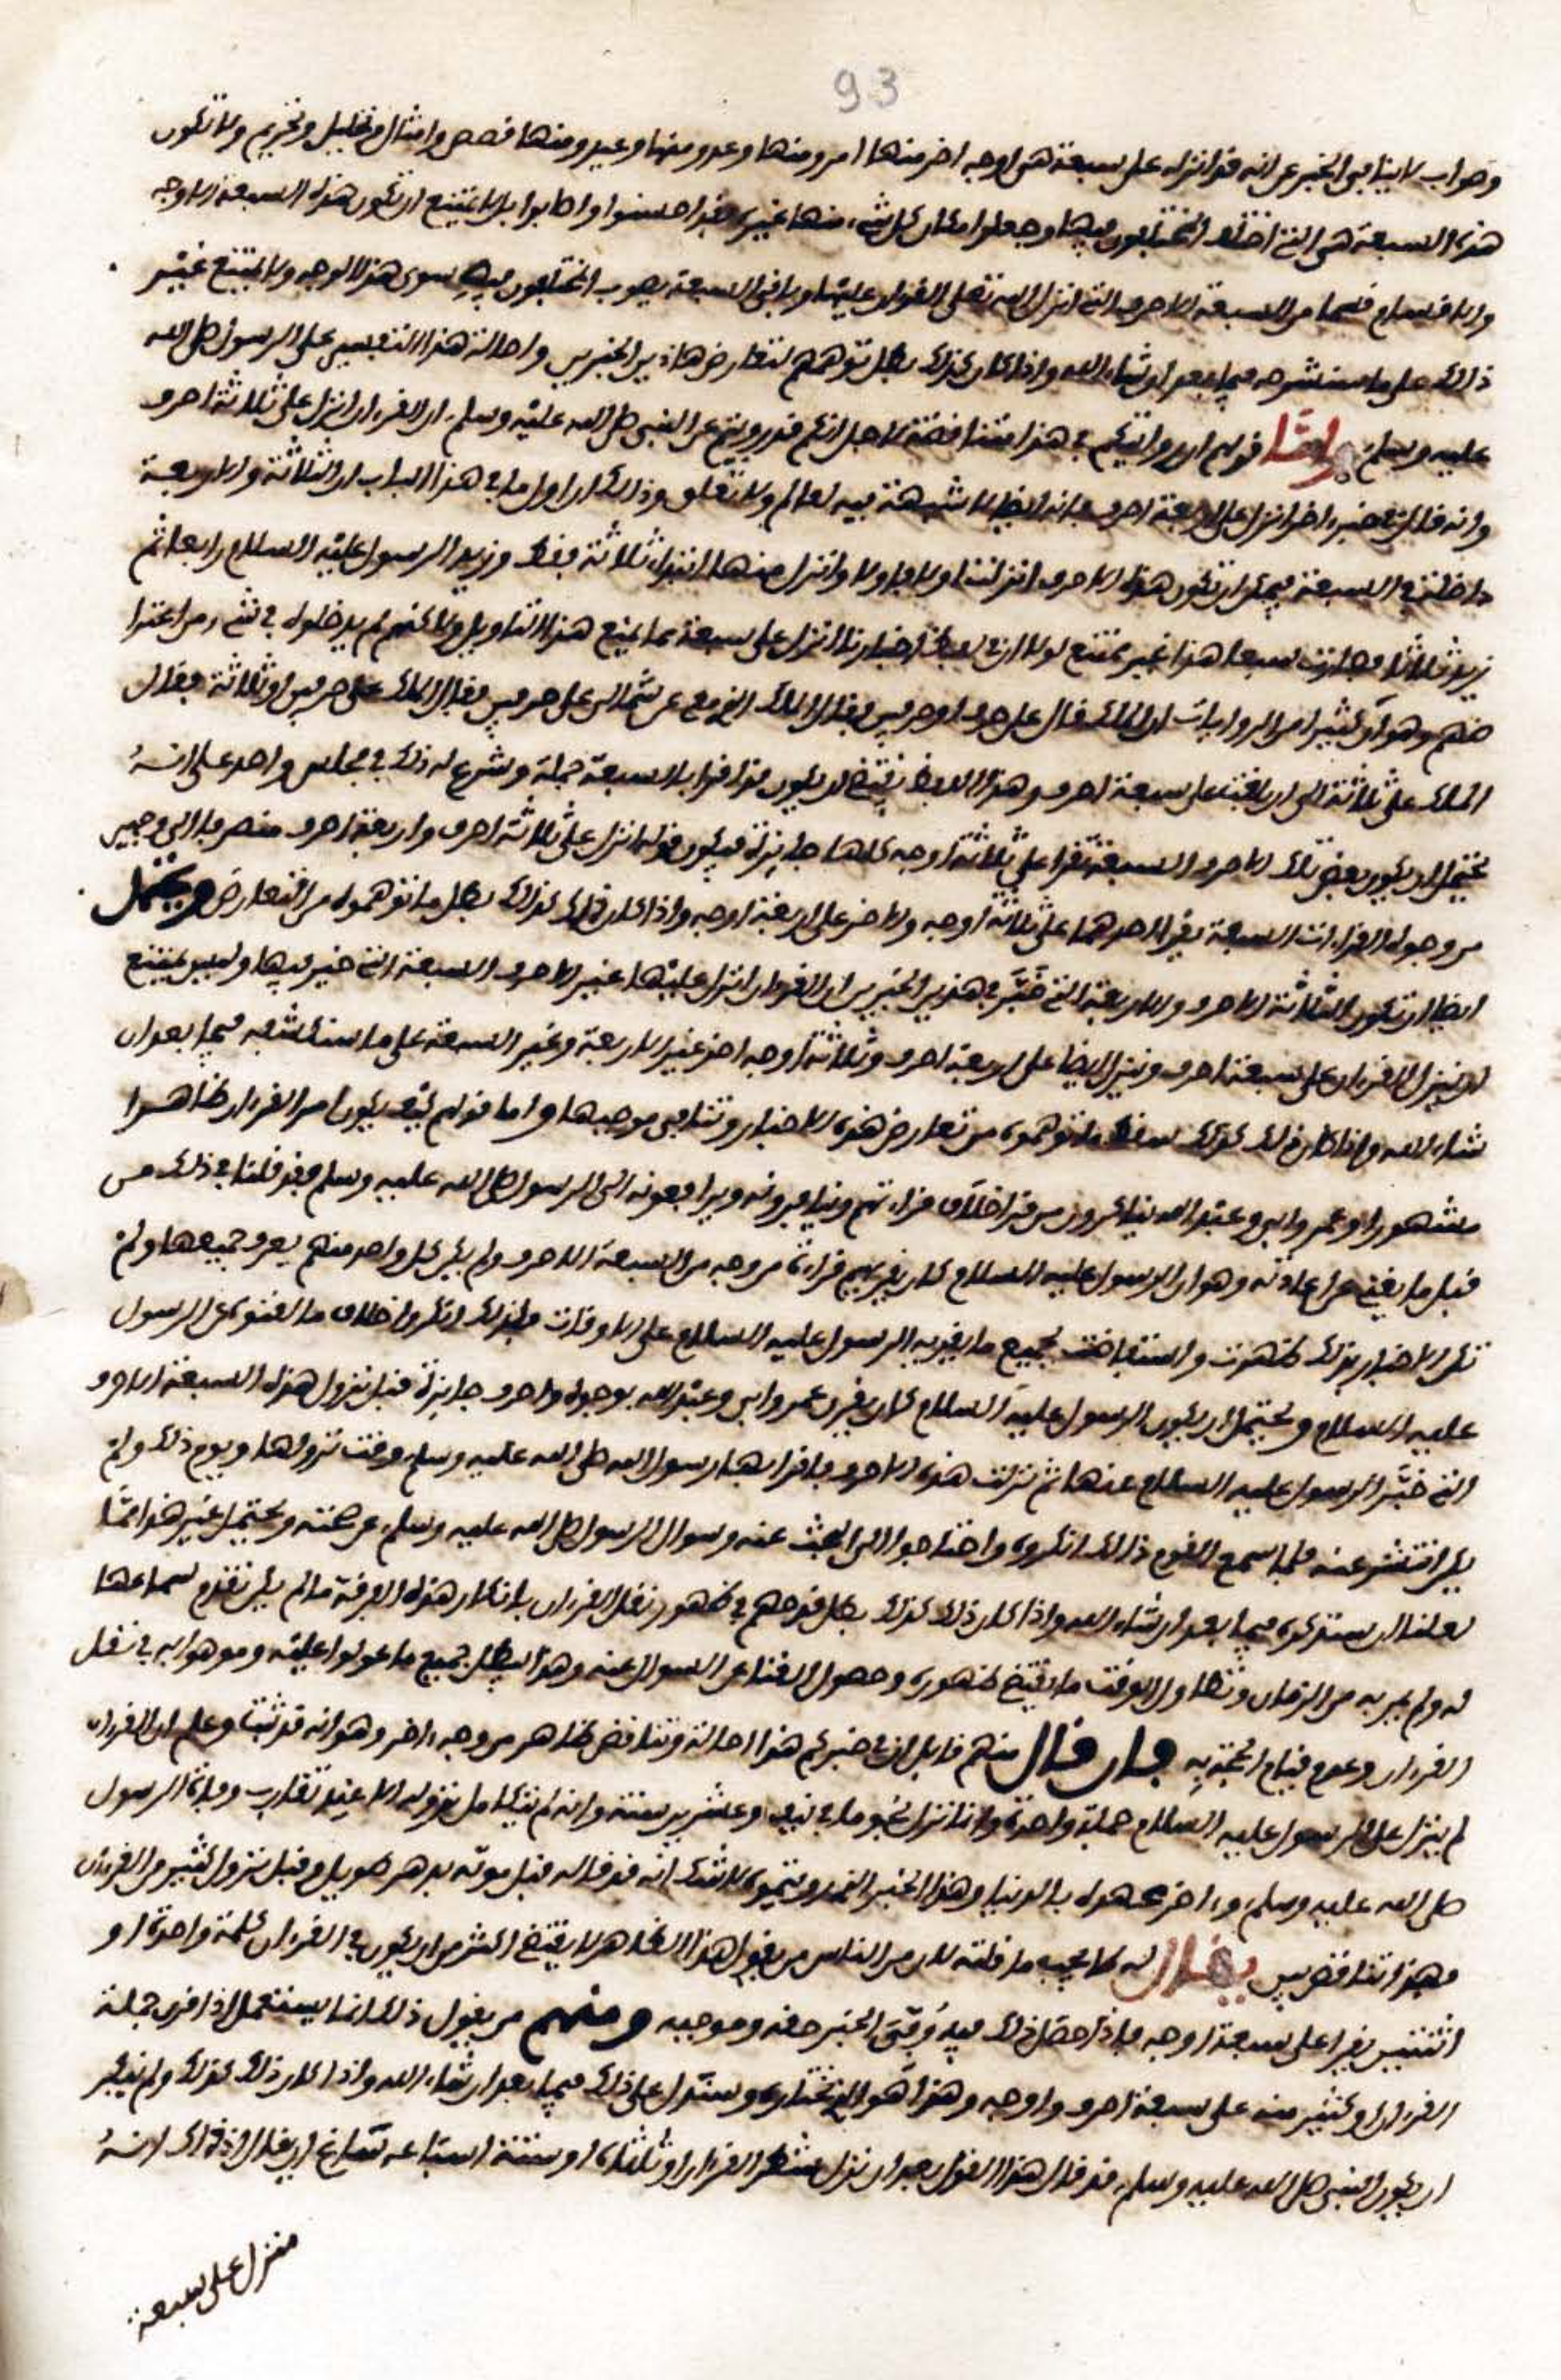 93
وصواب لا ينافي الخبر عن انه قد انزله على سبعة هي اوجه اخر منها امر ومنها وعد ومنها وعيد ومنها قصص وامثال وتحليل وتحريم ولا تكون
هذه السبعة هي التي اختلف المختلفون فيها وجعلوا مكان كل شيء منها غيره فقد احسنوا واصابوا بل لا يمتنع ان تكون هذه السبعة الاوجه
والاقسام قسما من السبعة الاحرف التي انزل الله تعلى القرءان عليها وباقي السبعة يصوب المختلفون فيه سوى هذا الوجه ولا يمتنع غير
ذلك على ما سنشرحه فيما بعد ان شاء الله واذا كان كذلك بطل توهمهم لتعارض هاذين الخبرين واحالة هذا التفسير على الرسول صلى الله
عليه وسلم واما قولهم ان روايتكم في هذا متناقضة لاجل انكم قد رويتم عن النبي صلى الله عليه وسلم ان القرءان انزل على ثلاثة احرف
وانه قال في خبر اخر انزل على اربعة احرف فانه ايضا لا شبهة فيه لعالم ولا تعلق وذلك ان اول ما في هذا الباب ان الثلاثة والاربعة
داخلة في السبعة فيمكن ان تكون هذه الاحرف انزلت اولا فاولا وانزل منها ابتداء ثلاثة فقط وزيد الرسول عليه السلام رابعا ثم
زيد ثلاثا فصارت سبعا هذا غير ممتنع لولا ان في لفظ اخبارنا انزل على سبعة مما يمنع هذا التاويل ولاكنهم لم يدخلوه في شيء من اعترا
ضهم وهو ان كثيرا من الروايات ان الملك قال على حرف او حرفين فقال الملك الذي عن شمالي على حرفين فقال الملك على حرفين او ثلاثة فقال
الملك على ثلاثة الى ان بلغت على سبعة احرف وهذا اللفظ يقتضي ان يكون توافوا بالسبعة جملة وشرع له ذلك في مجلس واحد على انه
يحتمل ان يكون بعض تلك الاحرف السبعة تقرا على ثلاثة اوجه كلها جايزة فيكون قوله انزل على ثلاثة احرف واربعة احرف منصرفا الى وجهين
من وجوه القراءات السبعة يقرا احدهما على ثلاثة اوجه والاخر على اربعة اوجه واذا كان ذلك كذلك بطل ما توهموه من التعارض ويحتمل
ايضا ان تكون الثلاثة الاحرف والاربعة التي خبر في هذين الخبرين ان القرءان انزل عليها غير الاحرف السبعة التي خير فيها وليس يمتنع
ان ينزل القرءان على سبعة احرف وينزل ايضا على اربعة احرف وثلاثة اوجه اخر غير الاربعة وغير السبعة على ما سنكشفه فيما بعد ان
شاء الله واذا كان ذلك كذلك سقط ما توهموه من تعارض هذه الاخبار وتنافي موجبها واما قولهم كيف يكون امر القرءان ظاهرا
مشهورا وعمر وابي وعبد الله يتناكرون من قرا خلاف قراءتهم ويتنافرونه ويرافعونه الى الرسول صلى الله عليه وسلم فقد قلنا في ذلك من
قبل ما يغني عن اعادته وهو ان الرسول عليه السلام كان يقريهم قراءة من وجه من السبعة الاحرف ولم يكن كل واحد منهم يعرف جميعها ولم
تكن الاخبار بذلك ظهرت واستفاضت بجميع ما يقري به الرسول عليه السلام على الاوقات فلذلك انكروا خلاف ما لقنوه عن الرسول
عليه السلام ويحتمل ان يكون الرسول عليه السلام كان يقري عمر وابي وعبد الله بوجوه واحرف جايزة قبل نزول هذه السبعة الاحرف
التي خبر الرسول عليه السلام عنها ثم نزلت هذه الاحرف فاقرا بها رسول الله صلى الله عليه وسلم وقت نزولها ويوم ذلك ولم
يكن انتشر عنه فلما سمع القوم ذلك انكروه واحتاجوا الى البحث عنه وسوال الرسول صلى الله عليه وسلم عن صحته ويحتمل غير هذا مما
لعلنا ان سنذكره فيما بعد ان شاء الله واذا كان ذلك كذلك بطل قدحهم في ظهور نقل القرءان بانكار هذه الفرقة ما لم يكن تقدم سماعها
له ولم يمر به من الزمان وتطاول الوقت ما يقتضي ظهوره وحصول الغنا عن السوال عنه وهذا يبطل جميع ما عولوا عليه وموهوا به في نقل
القرءان وعدم قيام الحجة به فان قال منهم قايل ان في خبركم هذا احالة وتناقض ظاهر من وجه اخر وهو انه قد ثبت وعلم ان القرءان
لم ينزل على الرسول عليه السلام جملة واحدة وانما نزل نجوما في نيف وعشرين سنة وانه لم يتكامل نزوله الا عند تقارب وفاة الرسول
صلى الله عليه وسلم واخر عهده بالدنيا وهذا الخبر الذي رويتموه لا شك انه قد قاله قبل موته بدهر طويل وقبل نزول كثير من القرءان
وهذا تناقض بين يقال له لا يجب ما قلته لان من الناس من يقول هذا الظاهر لا يقتضي اكثر من ان يكون في القرءان كلمة واحدة او
اثنتين يقرا على سبعة اوجه فاذا حصل ذلك فيه وفى الخبر حقه وموجبه ومنهم من يقول ذلك انما يستعمل اذا قرئ جملة
القرءان او كثير منه على سبعة احرف واوجه وهذا هو الذي نختاره وسندل على ذلك فيما بعد ان شاء الله واذا كان ذلك كذلك ولم ينكر
ان يكون النبي صلى الله عليه وسلم قد قال هذا القول بعد ان نزل شطر القرءان او ثلثاه او ستة اسباعه ساغ ان يقال اذ ذاك انه
منزل على سبعة